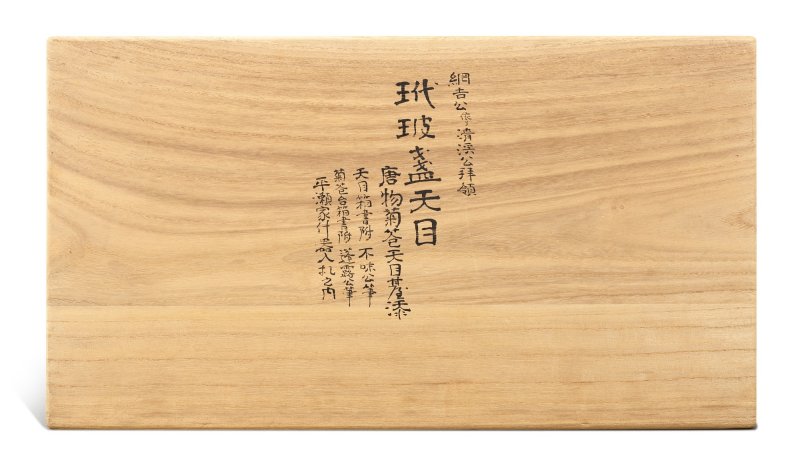 綱吉公 清渓公拝領
玳玻盞天目
唐物菊花天目臺添
天目箱書附 不昧公筆
菊花台箱書附 蓬露公筆
平瀬家什器入札之内